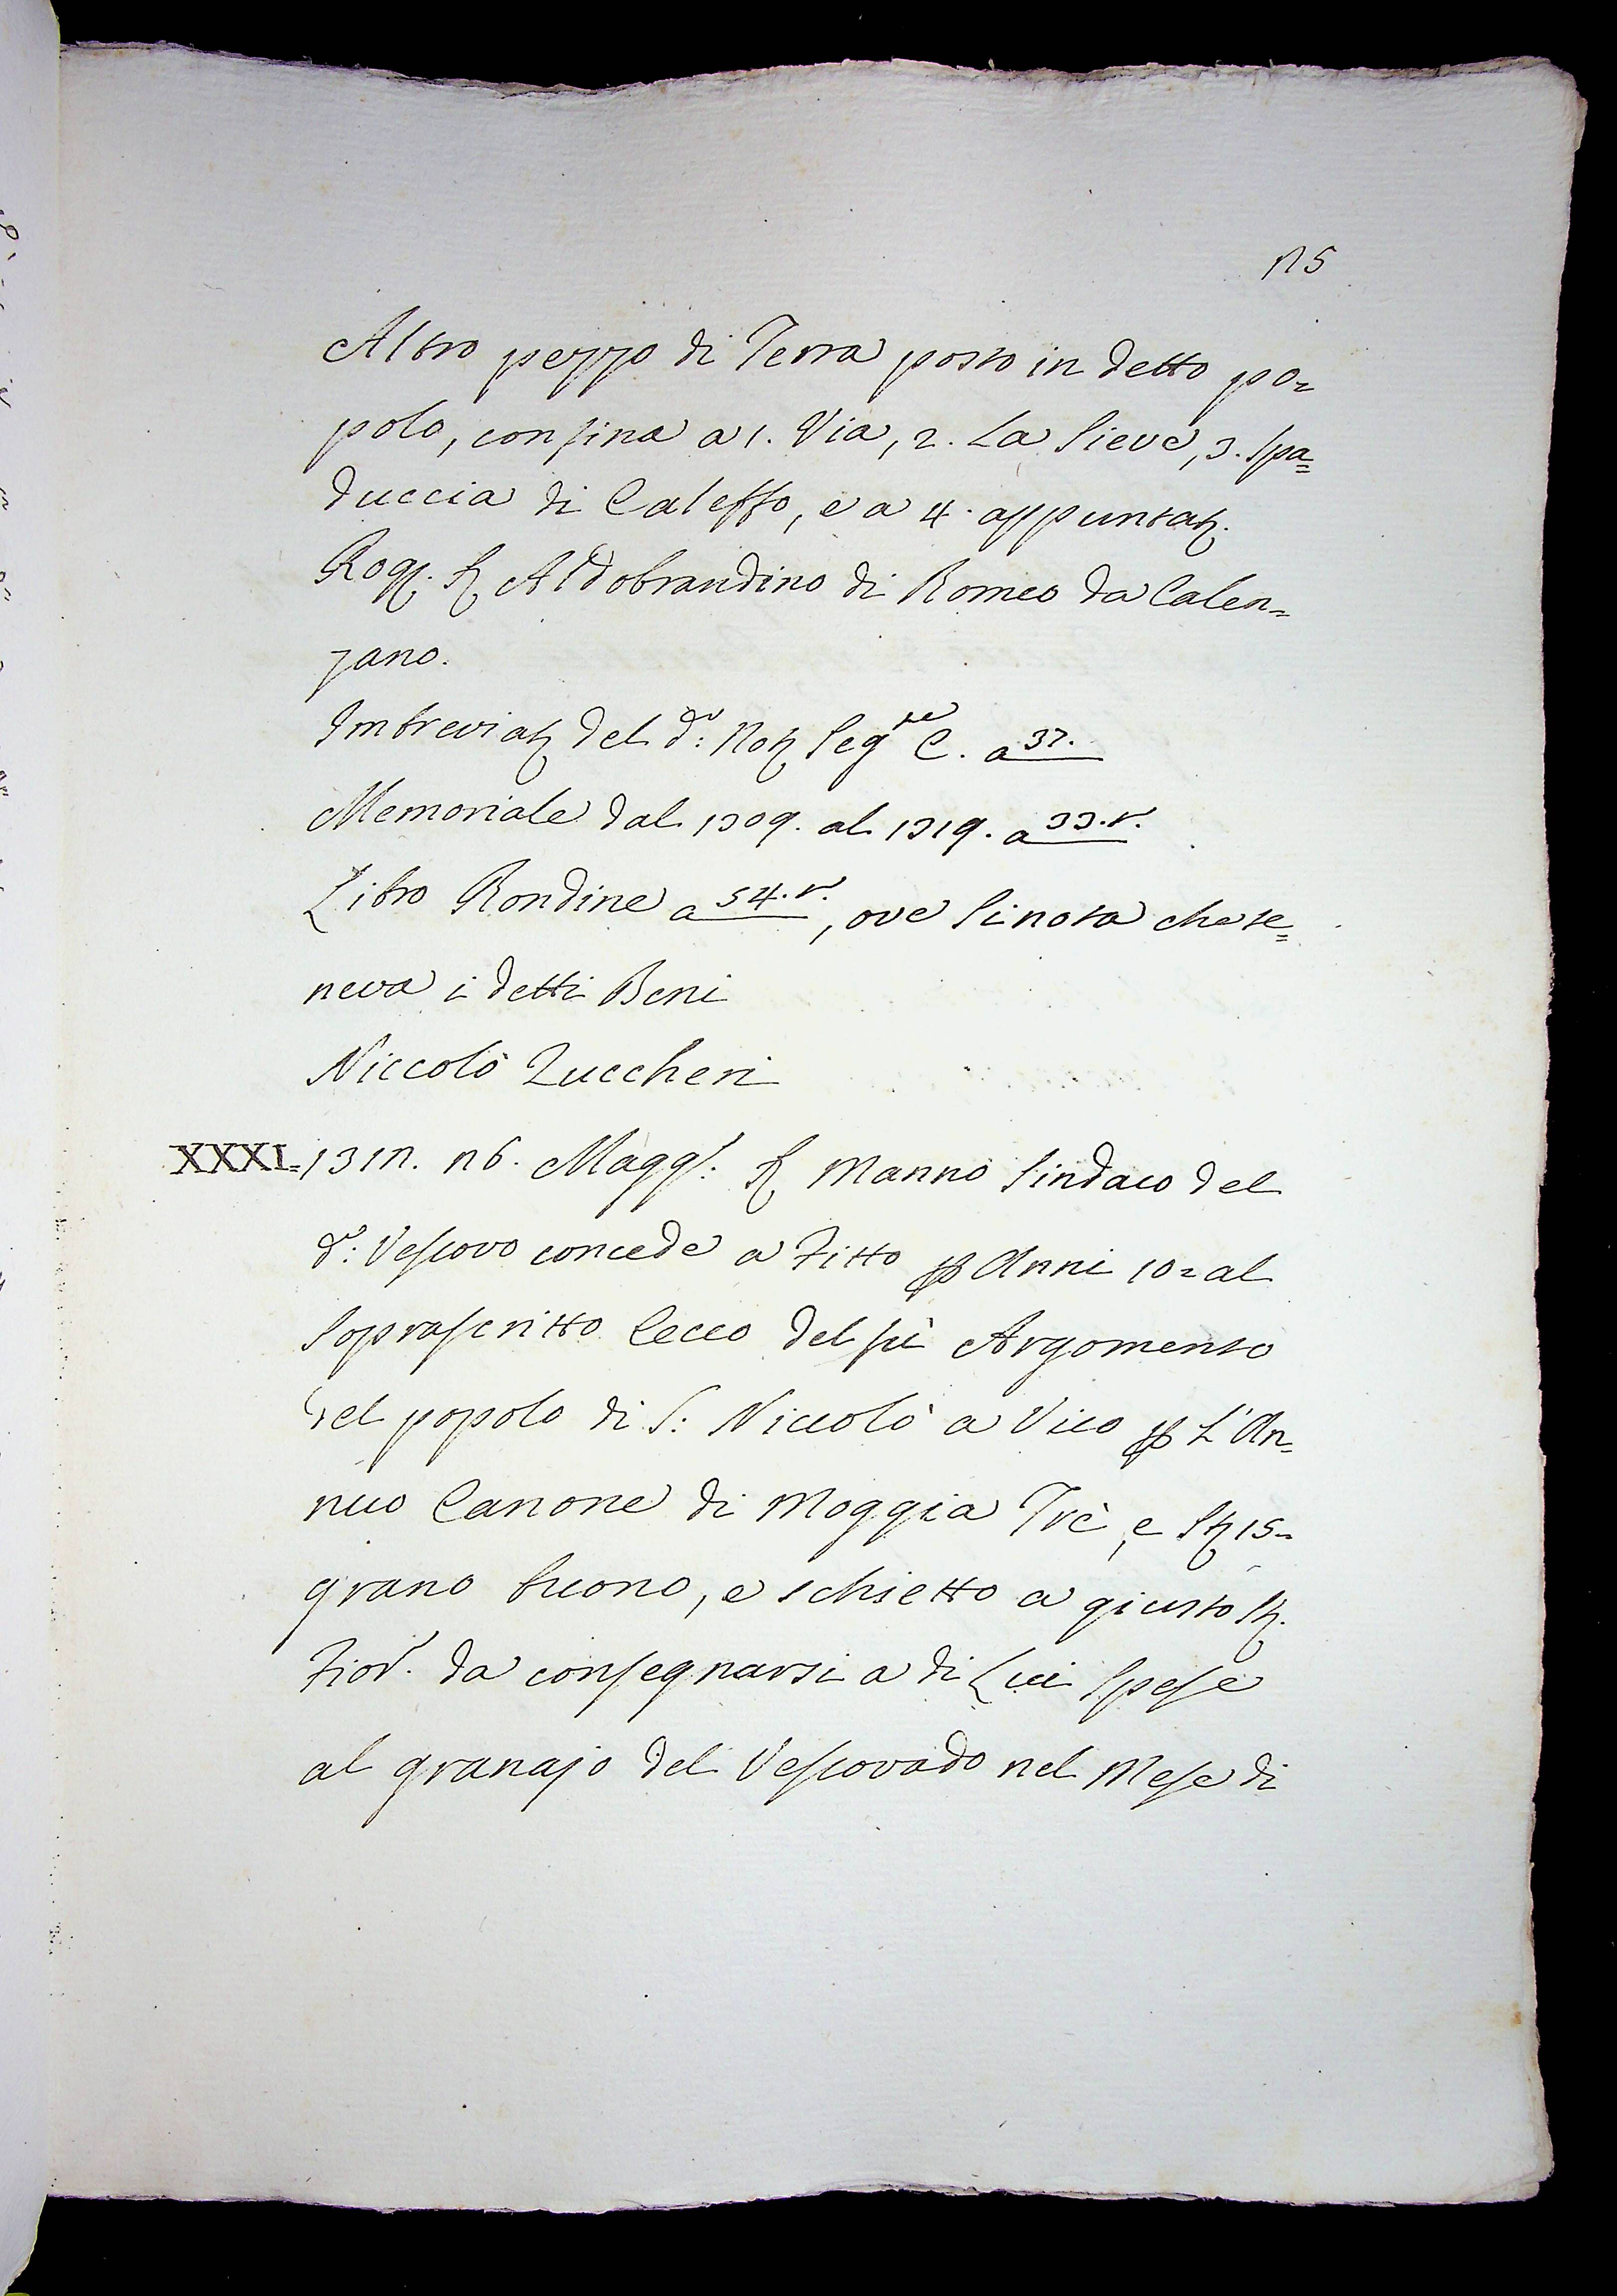 125
Altro pezzo di Terra posto in detto po=
polo, confina a 1. Via, 2. La Pieve, 3. Spa=
duccia di Caleffo, e a 4. appuntat.
Rog. Ser Aldobrandino di Romeo da Calen=
zano.
Imbreviat. del d.o: Not. Seg.te C. a 37.
Memoriale dal 1309. al 1319. a 33.t.
Libro Rondine a 54.t., ove si nota che te=
neva i detti Beni
Niccolò Zuccheri
XXXI= 1312. 26. Magg.: Ser Manno Sindaco del
d.o: Vescovo concede a Fitto per Anni 10= al
Soprascritto Cecco del fù Argomento
del popolo di S: Niccolò a Vico per L'An=
nuo Canone di Moggia Trè, e St. 15=
grano buono, e schietto a giusto St.
Fior. da consegnarsi a di Lui Spese
al granajo del Vescovado nel Mese di